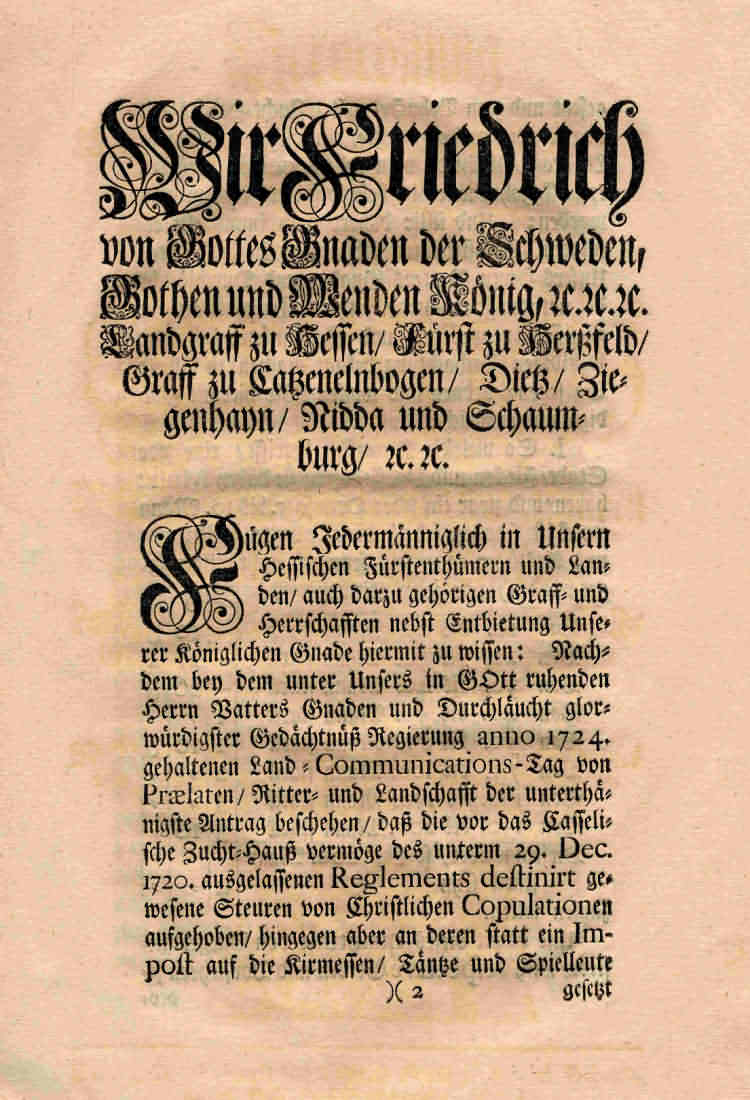 Wir Friedrich
von Gottes Gnaden der Schweden,
Gothen und Wenden König, ꝛc.ꝛc.ꝛc.
Landgraff zu Hessen/ Fürst zu Herßfeld/
Graff zu Catzenelnbogen/ Dietz/ Zie-
genhayn/ Nidda und Schaum-
burg/ ꝛc. ꝛc.
Fügen Jedermänniglich in Unsern
Hessischen Fürstenthümern und Lan-
den/ auch darzu gehörigen Graff- und
Herrschafften nebst Entbietung Unse-
rer Königlichen Gnade hiermit zu wissen: Nach-
dem bey dem unter Unsers in GOtt ruhenden
Herrn Vatters Gnaden und Durchläucht glor-
würdigster Gedächtnüß Regierung anno 1724.
gehaltenen Land-Communications-Tag von
Prælaten/ Ritter- und Landschafft der unterthä-
nigste Antrag beschehen/ daß die vor das Casseli-
sche Zucht-Hauß vermöge des unterm 29. Dec.
1720. ausgelassenen Reglements destinirt ge-
wesene Steuren von Christlichen Copulationen
aufgehoben/ hingegen aber an deren statt ein Im-
post auf die Kirmessen/ Täntze und Spielleute
)( 2 gesetzt